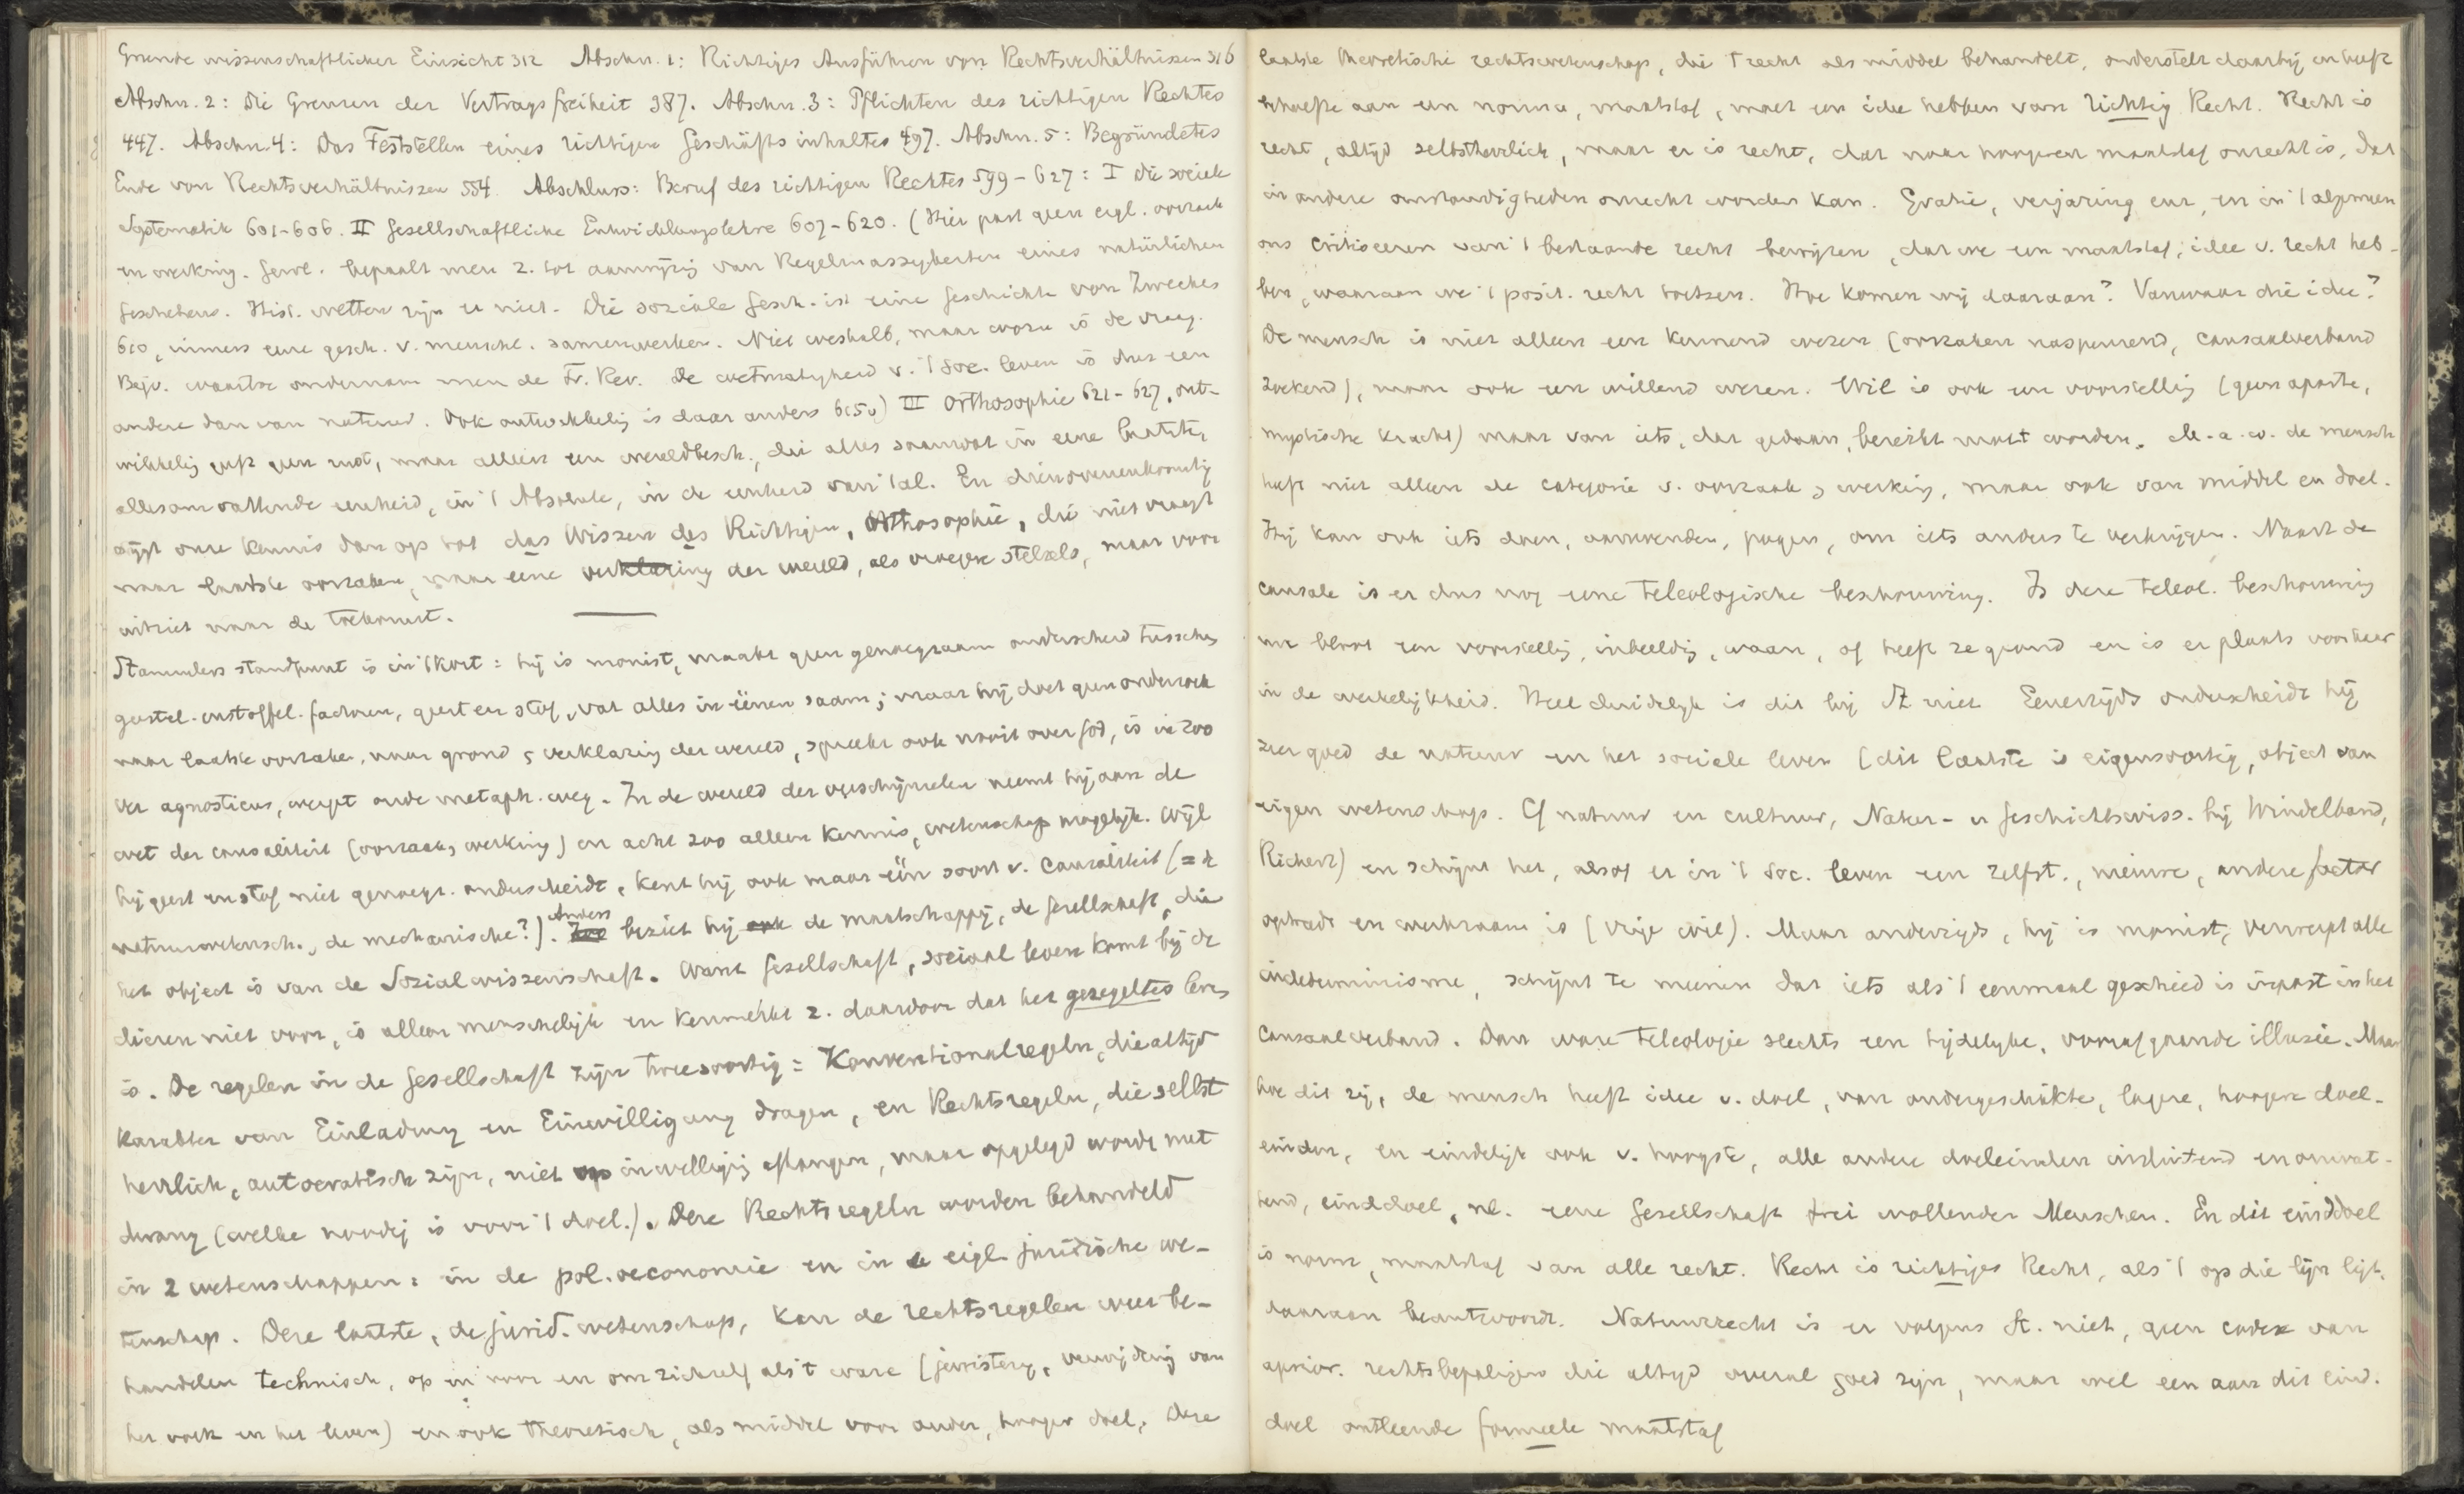 Gründe wissenschaftlicher Einsicht 312 Abschn. 1: Richtiges Ausführen von Rechtsverhältnissen 316
Abschn. 2: Die Grenzen der Vertragsfreiheit 387. Abschn. 3: Pflichten des richtigen Rechtes
447. Abschn. 4: Das Feststellen eines richtigen Geschäftsinhaltes 497. Abschn. 5: Begründetes
Ende von Rechtsverhältnissen 554. Abschluss: Beruf des richtigen Rechtes 599-627: I Die sociale
Systematik 601-606. II Gesellschaftliche Entwicklungslehre 607-620. (Hier past geen eigl. oorzaak
en werking. Gewl. bepaalt men z. tot aanwijzig van Regelmassigkeiten eines natürlichen
Geschehens. Hist. wetten zijn er niet. Die soziale Gesch. ist eine Geschichte von Zwecken
610, immers eene gesch. v. menschl. samenwerken. Niet weshalb, maar wozu is de vraag.
Bijv. waartoe ondernam men de Fr. Rev. De wetmatigheid v. 't soc. leven is dus een
andere dan van natuur. Ook ontwikkelig is daar anders 615v) III Orthosophie 621-627, ont-
wikkelig geeft geen rust, maar alleen een wereldbesch., die alles saamvat in eene laatste,
allesomvattende eenheid, in 't Absolute, in de eenheid van 't al. En dienovereenkomstig
stijgt onze kennis dan op tot das Wissen des Richtigen, Orthosophie, die niet vraagt
naar laatste oorzaken, naar eene verklaring der wereld, als vroegere stelsels, maar voor
uitziet naar de toekomst.
Stammlers standpunt is in 't kort: hij is monist, maakt geen genoegzaam onderscheid tusschen
geestel. en stoffel. factoren, geest en stof, vat alles in éénen saam; maar hij doet geen onderzoek
naar laatste oorzaken, naar grond & verklaring der wereld, spreekt ook nooit over God, is in zoo
ver agnosticus, werpt oude metaph. weg. In de wereld der verschijnselen neemt hij aan de
wet der causaliteit (oorzaak & werking) en acht zoo alleen kennis, wetenschap mogelijk. Wijl
hij geest en stof niet genoegz. onderscheidt, kent hij ook maar één soort v. causaliteit (= de
natuurwetensch., de mechanische?). Anders beziet hij de maatschappij, de Gesellschaft, die
het object is van de Sozialwissenschaft. Want Gesellschaft, sociaal leven komt bij de
dieren niet voor, is alleen menschelijk en kenmerkt z. daardoor dat het geregeltes leven
is. De regelen in de Gesellschaft zijn tweesoortig: Konventionalregeln, die altijd
karakter van Einladung en Einwilligung dragen, en Rechtsregeln, die selbst
herrlich, autocratisch zijn, niet van inwilligig afhangen, maar opgelegd worde met
dwang (welke noodig is voor 't doel.). Deze Rechtsregeln worden behandeld
in 2 wetenschappen: in de pol. oeconomie en in de eigl. juridische we-
tenschap. Deze laatste, de jurid. wetenschap, kan de rechtsregelen weer be-
handelen technisch, op en voor en om zichzelf als 't ware (juristerij, vermijding van
het volk en het leven) en ook theoretisch, als middel voor ander, hooger doel. Deze
laatste theoretische rechtswetenschap, die 't recht als middel behandelt, onderstelt daarbij en heeft
behoefte aan een norma, maatstaf, moet een idee hebben van richtig Recht. Recht is
recht, altijd selbstherrlich, maar er is recht, dat naar hoogeren maatstaf onrecht is, dat
in andere omstandigheden onrecht worden kan. Gratie, verjaring enz., en in 't algemeen
ons critiseeren van 't bestaande recht bewijzen, dat we een maatstaf, idee v. recht heb-
ben, waaraan we 't posit. recht toetsen. Hoe komen wij daaraan? Vanwaar die idee?
De mensch is niet alleen een kennend wezen (oorzaken naspeurend, causaalverband
zoekend), maar ook een willend wezen. Wil is ook een voorstellig (geen aparte,
mystische kracht) maar van iets, dat gedaan, bereikt moet worden. M.a.w. de mensch
heeft niet alleen de categorie v. oorzaak & werking, maar ook van middel en doel.
Hij kan ook iets doen, aanwenden, pogen, om iets anders te verkrijgen. Naast de
causale is er dus nog eene teleologische beschouwing. Is deze teleol. beschouwing
nu bloot een voorstellig, inbeeldig, waan, of heeft ze grond en is er plaats voor haar
in de werkelijkheid. Heel duidelijk is dit bij St. niet. Eenerzijds onderscheidt hij
zeer goed de natuur en het sociale leven (dit laatste is eigensoortig, object van
eigen wetenschap. Cf natuur en cultuur, Natur- u Geschichtswiss. bij Windelband,
Rickert) en schijnt het, alsof er in 't soc. leven een zelfst., nieuwe, andere factor
optreedt en werkzaam is (vrije wil). Maar anderzijds, hij is monist, verwerpt alle
indeterminisme, schijnt te meenen dat iets als 't eenmaal geschied is inpast in het
causaalverband. Dan ware teleologie slechts een tijdelijke, voorafgaande illusie. Maar
hoe dit zij, de mensch heeft idee v. doel, van ondergeschikte, lagere, hoogere doel-
einden, en eindelijk ook v. hoogste, alle andere doeleinden insluitend en omvat-
tend, einddoel, nl. eene Gesellschaft frei wollender Menschen. En dit einddoel
is norm, maatstaf van alle recht. Recht is richtiges Recht, als 't op die lijn ligt,
daaraan beantwoordt. Natuurrecht is er volgens St. niet, geen codex van
aprior. rechtsbepalingen die altijd overal goed zijn, maar wel een aan dit eind-
doel ontleende formeele maatstaf